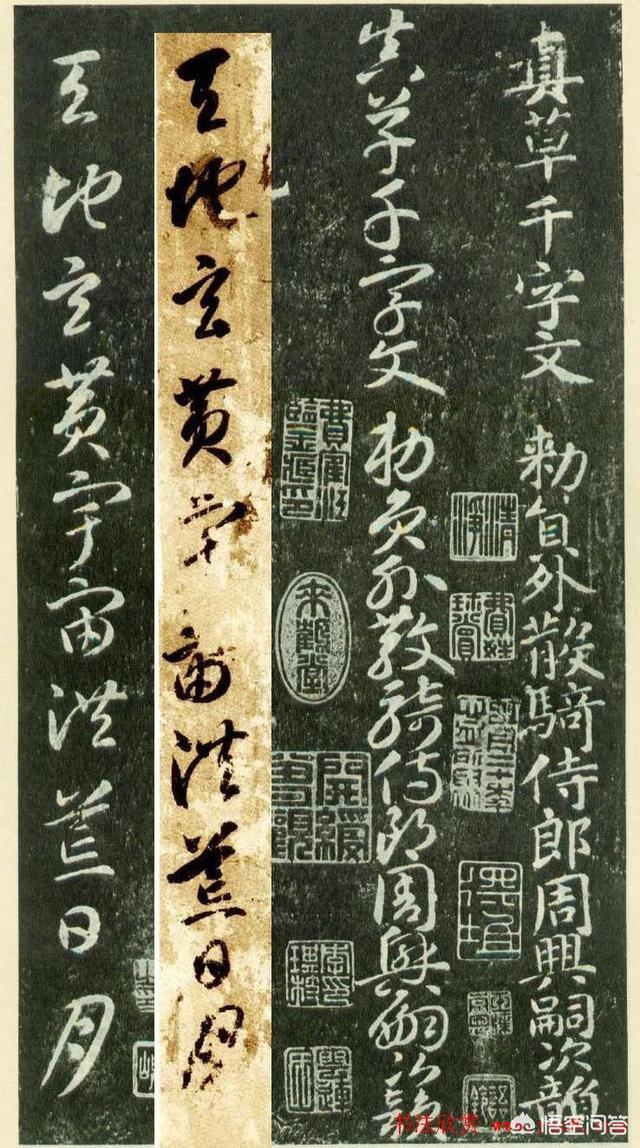 真草千字文 敕員外散騎侍郎周興嗣次韻
真草千字文 敕員外散騎侍郎周興嗣次韻
天地玄黃宇宙洪荒日月
天地玄黃宇宙洪荒日月
來鶴堂
清淨
書法欣赏
悟空问答